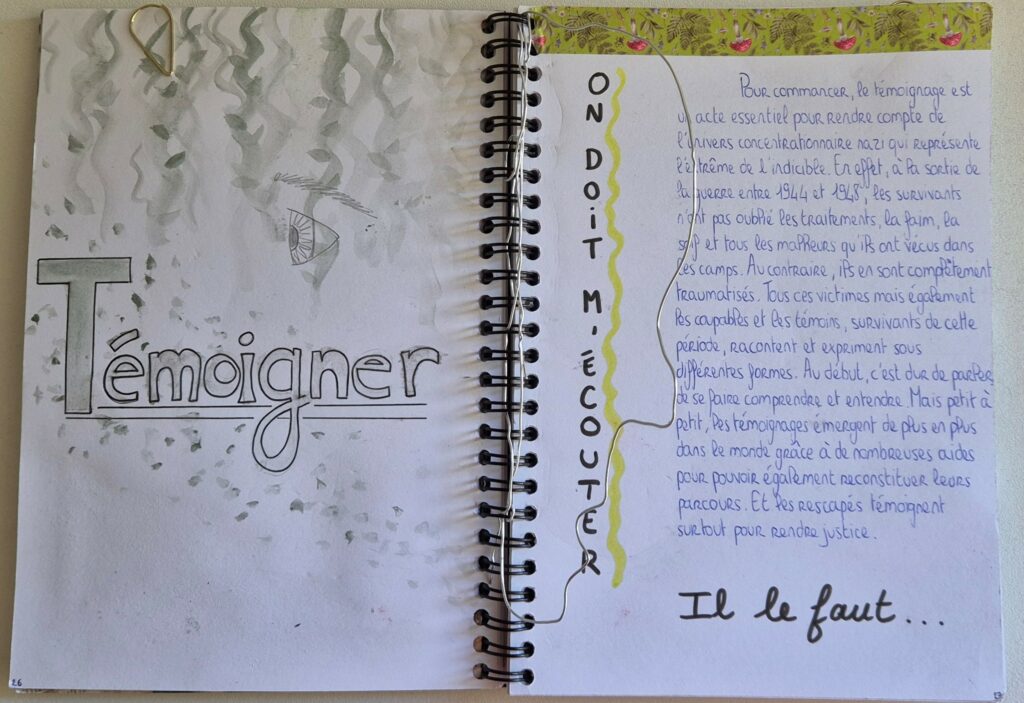 Témoigner
26
ON DOIT M'ÉCOUTER
Pour commancer, le témoignage est
un acte essentiel pour rendre compte de
l'univers concentrationnaire nazi qui représente
l'extrême de l'indicible. En effet, à la sortie de
la guerre entre 1944 et 1948, les survivants
n'ont pas oublié les traitements, la faim, la
soif et tous les malheurs qu'ils ont vécus dans
les camps. Au contraire, ils en sont complètement
traumatisés. Tous ces victimes mais également
les coupables et les témoins, survivants de cette
période, racontent et expriment sous
différentes formes. Au début, c'est dur de parler,
de se faire comprendre et entendre. Mais petit à
petit, les témoignages émergent de plus en plus
dans le monde grâce à de nombreuses aides
pour pouvoir également reconstituer leurs
parcours. Et les rescapés témoignent
surtout pour rendre justice.
Il le faut...
27